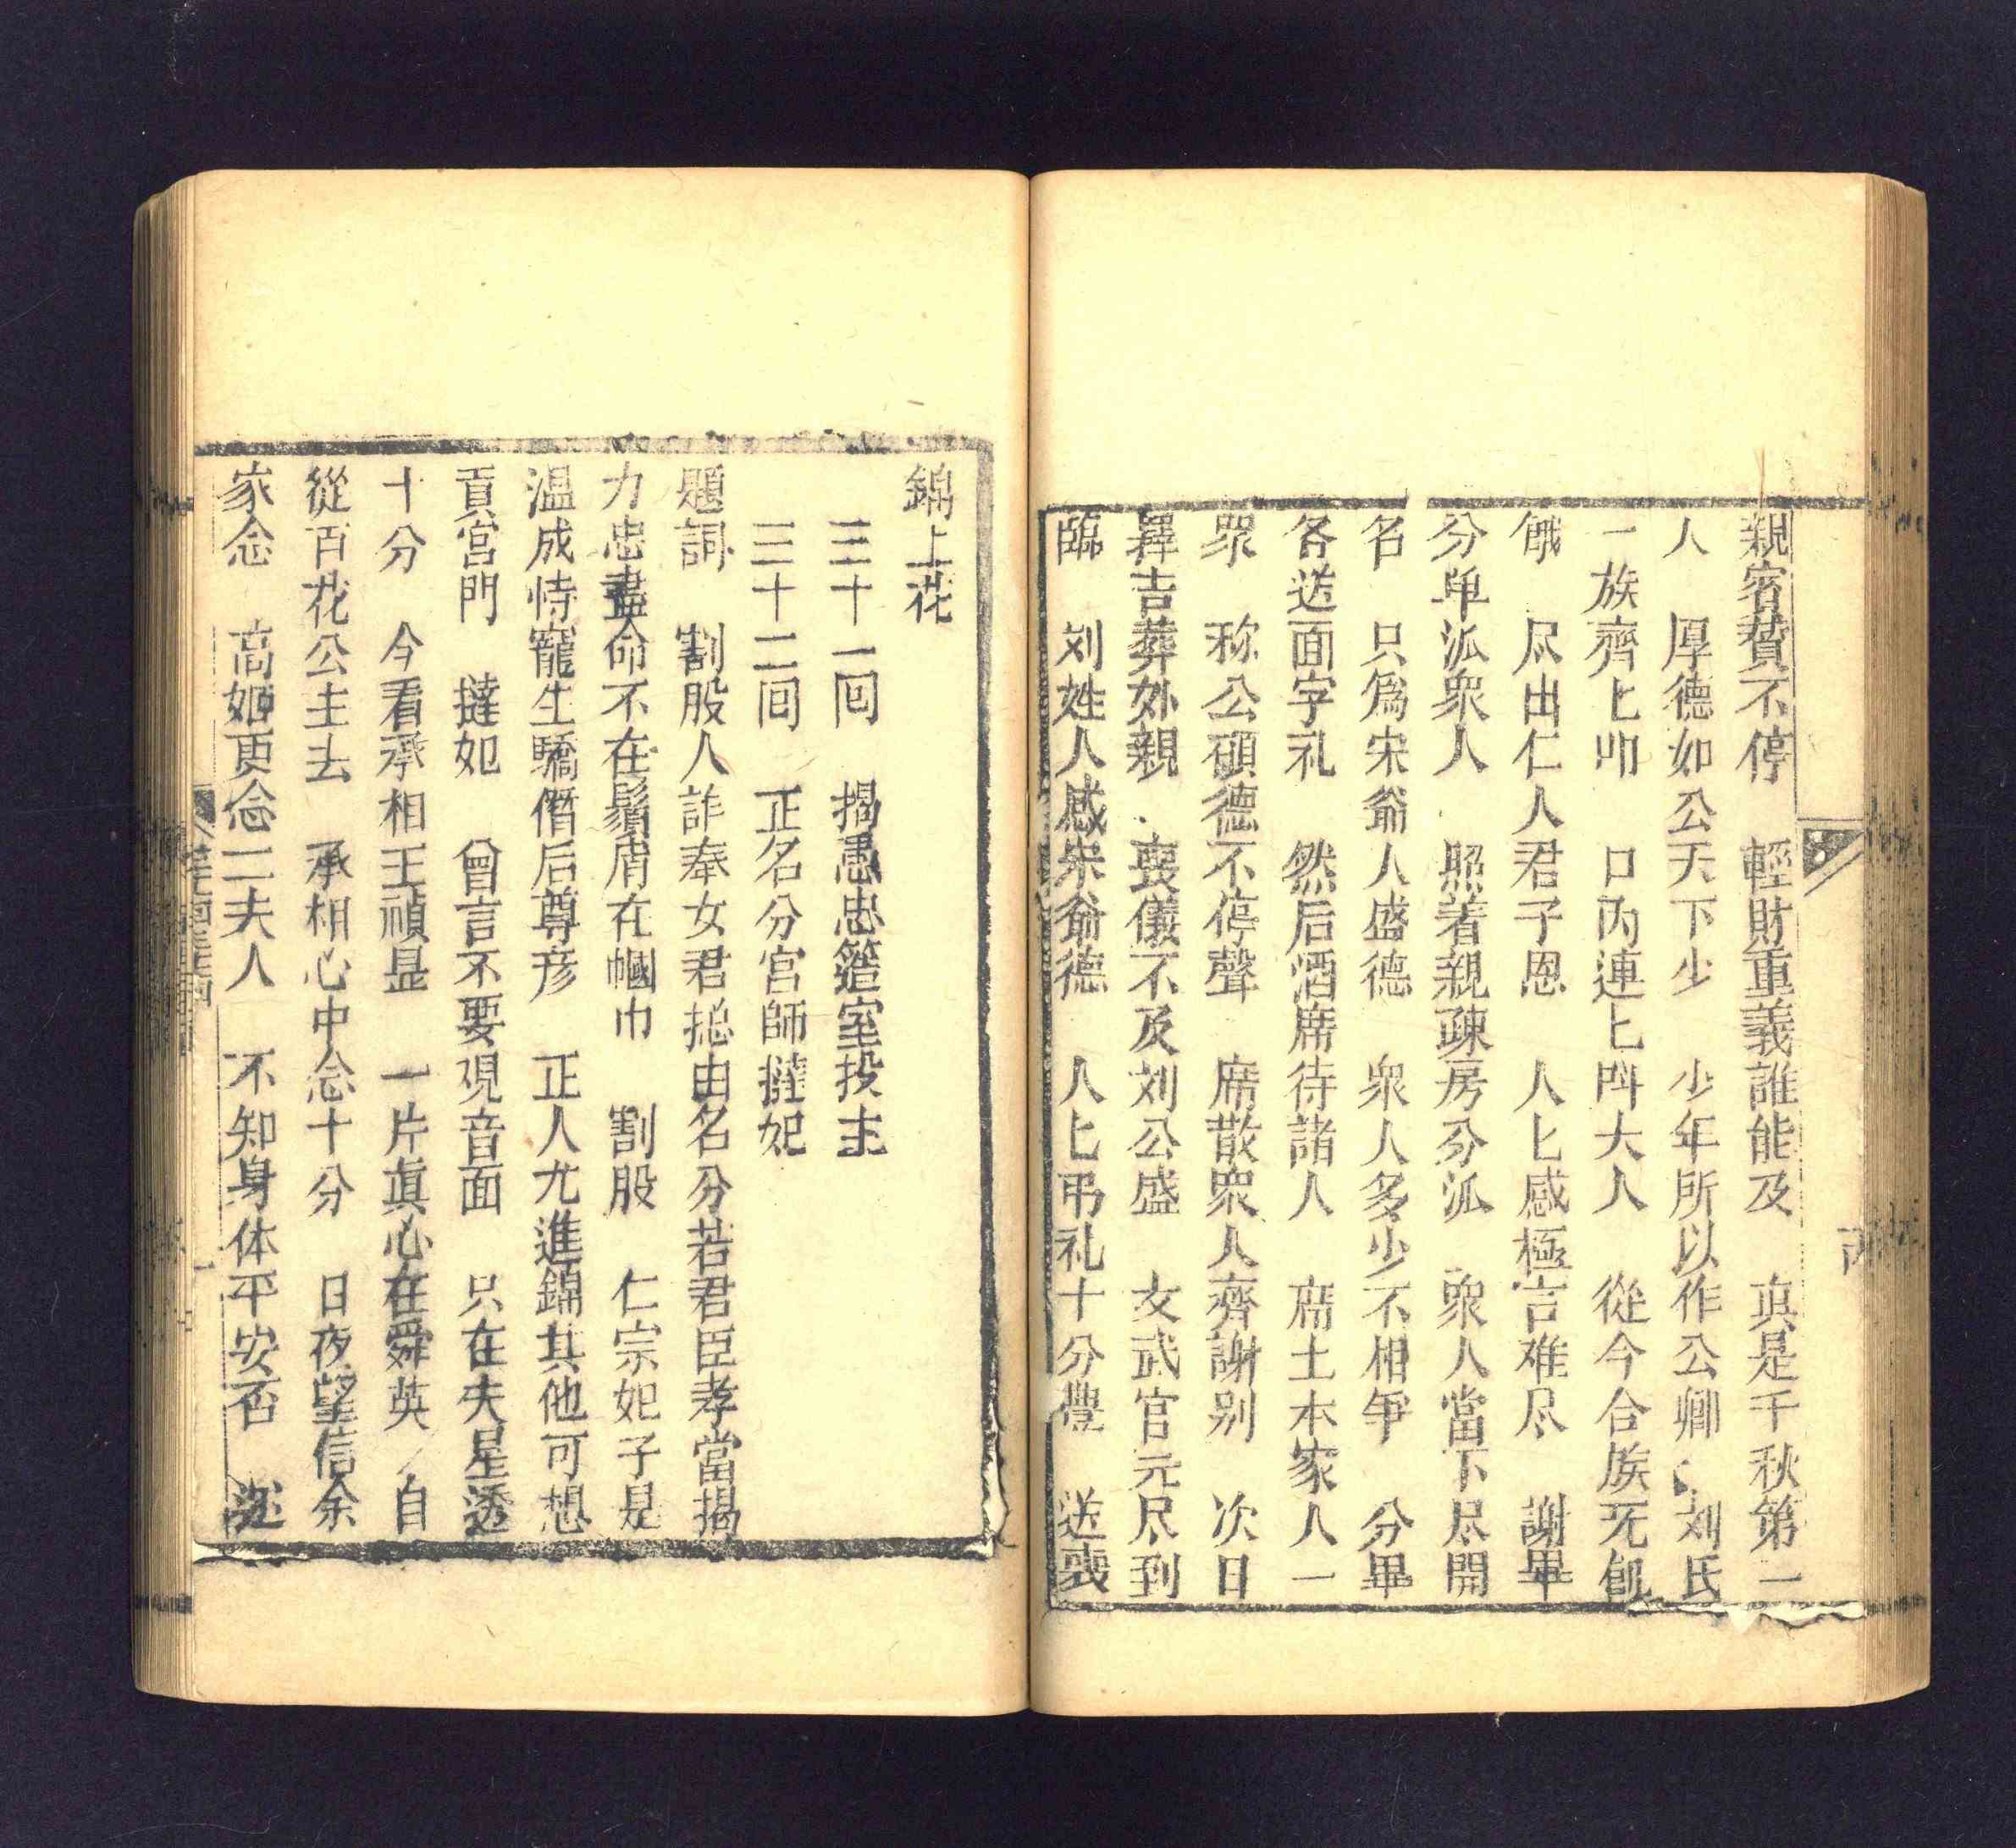 親宾賛不停　輕財重義誰能及　真是千秋第一
人　厚德如公天下少　少年所以作公卿　刘氏
一族齊匕叩　口内連匕呌大人　從今合族死
餓　尽出仁人君子恩　人匕感極言难尽　謝畢
分单派衆人　照着親疎房分派　衆人當下尽開
名　只為宋爺人盛德　衆人多少不相争　分畢
各送面字礼　然后酒席待諸人　席土本家人一
眾　称公碩德不停聲　席散衆人齊謝别　次日
擇吉葬外親　喪儀不及刘公盛　文武官元尽到
臨　刘姓人人感宋爺德　人匕弔礼十分豊　送喪
錦上花
三十一回　揭愚忠簉室投主
三十二回　正名分宮師撻妃
題詞　割股人詐奉女君摠由名分若君臣孝當揭
力忠盡命不在鬚眉在幗巾　割股　仁宗妃子是
温成恃寵生驕僭后尊彦　正人尤進錦其他可想
貢宮門　撻妃　曾言不要观音面　只在夫星透
十分　今看承相王禎显　一片真心在舜英　自
從百花公主去　承相心中念十分　日夜望信余
家念　高姬更念二夫人　不知身体平安否